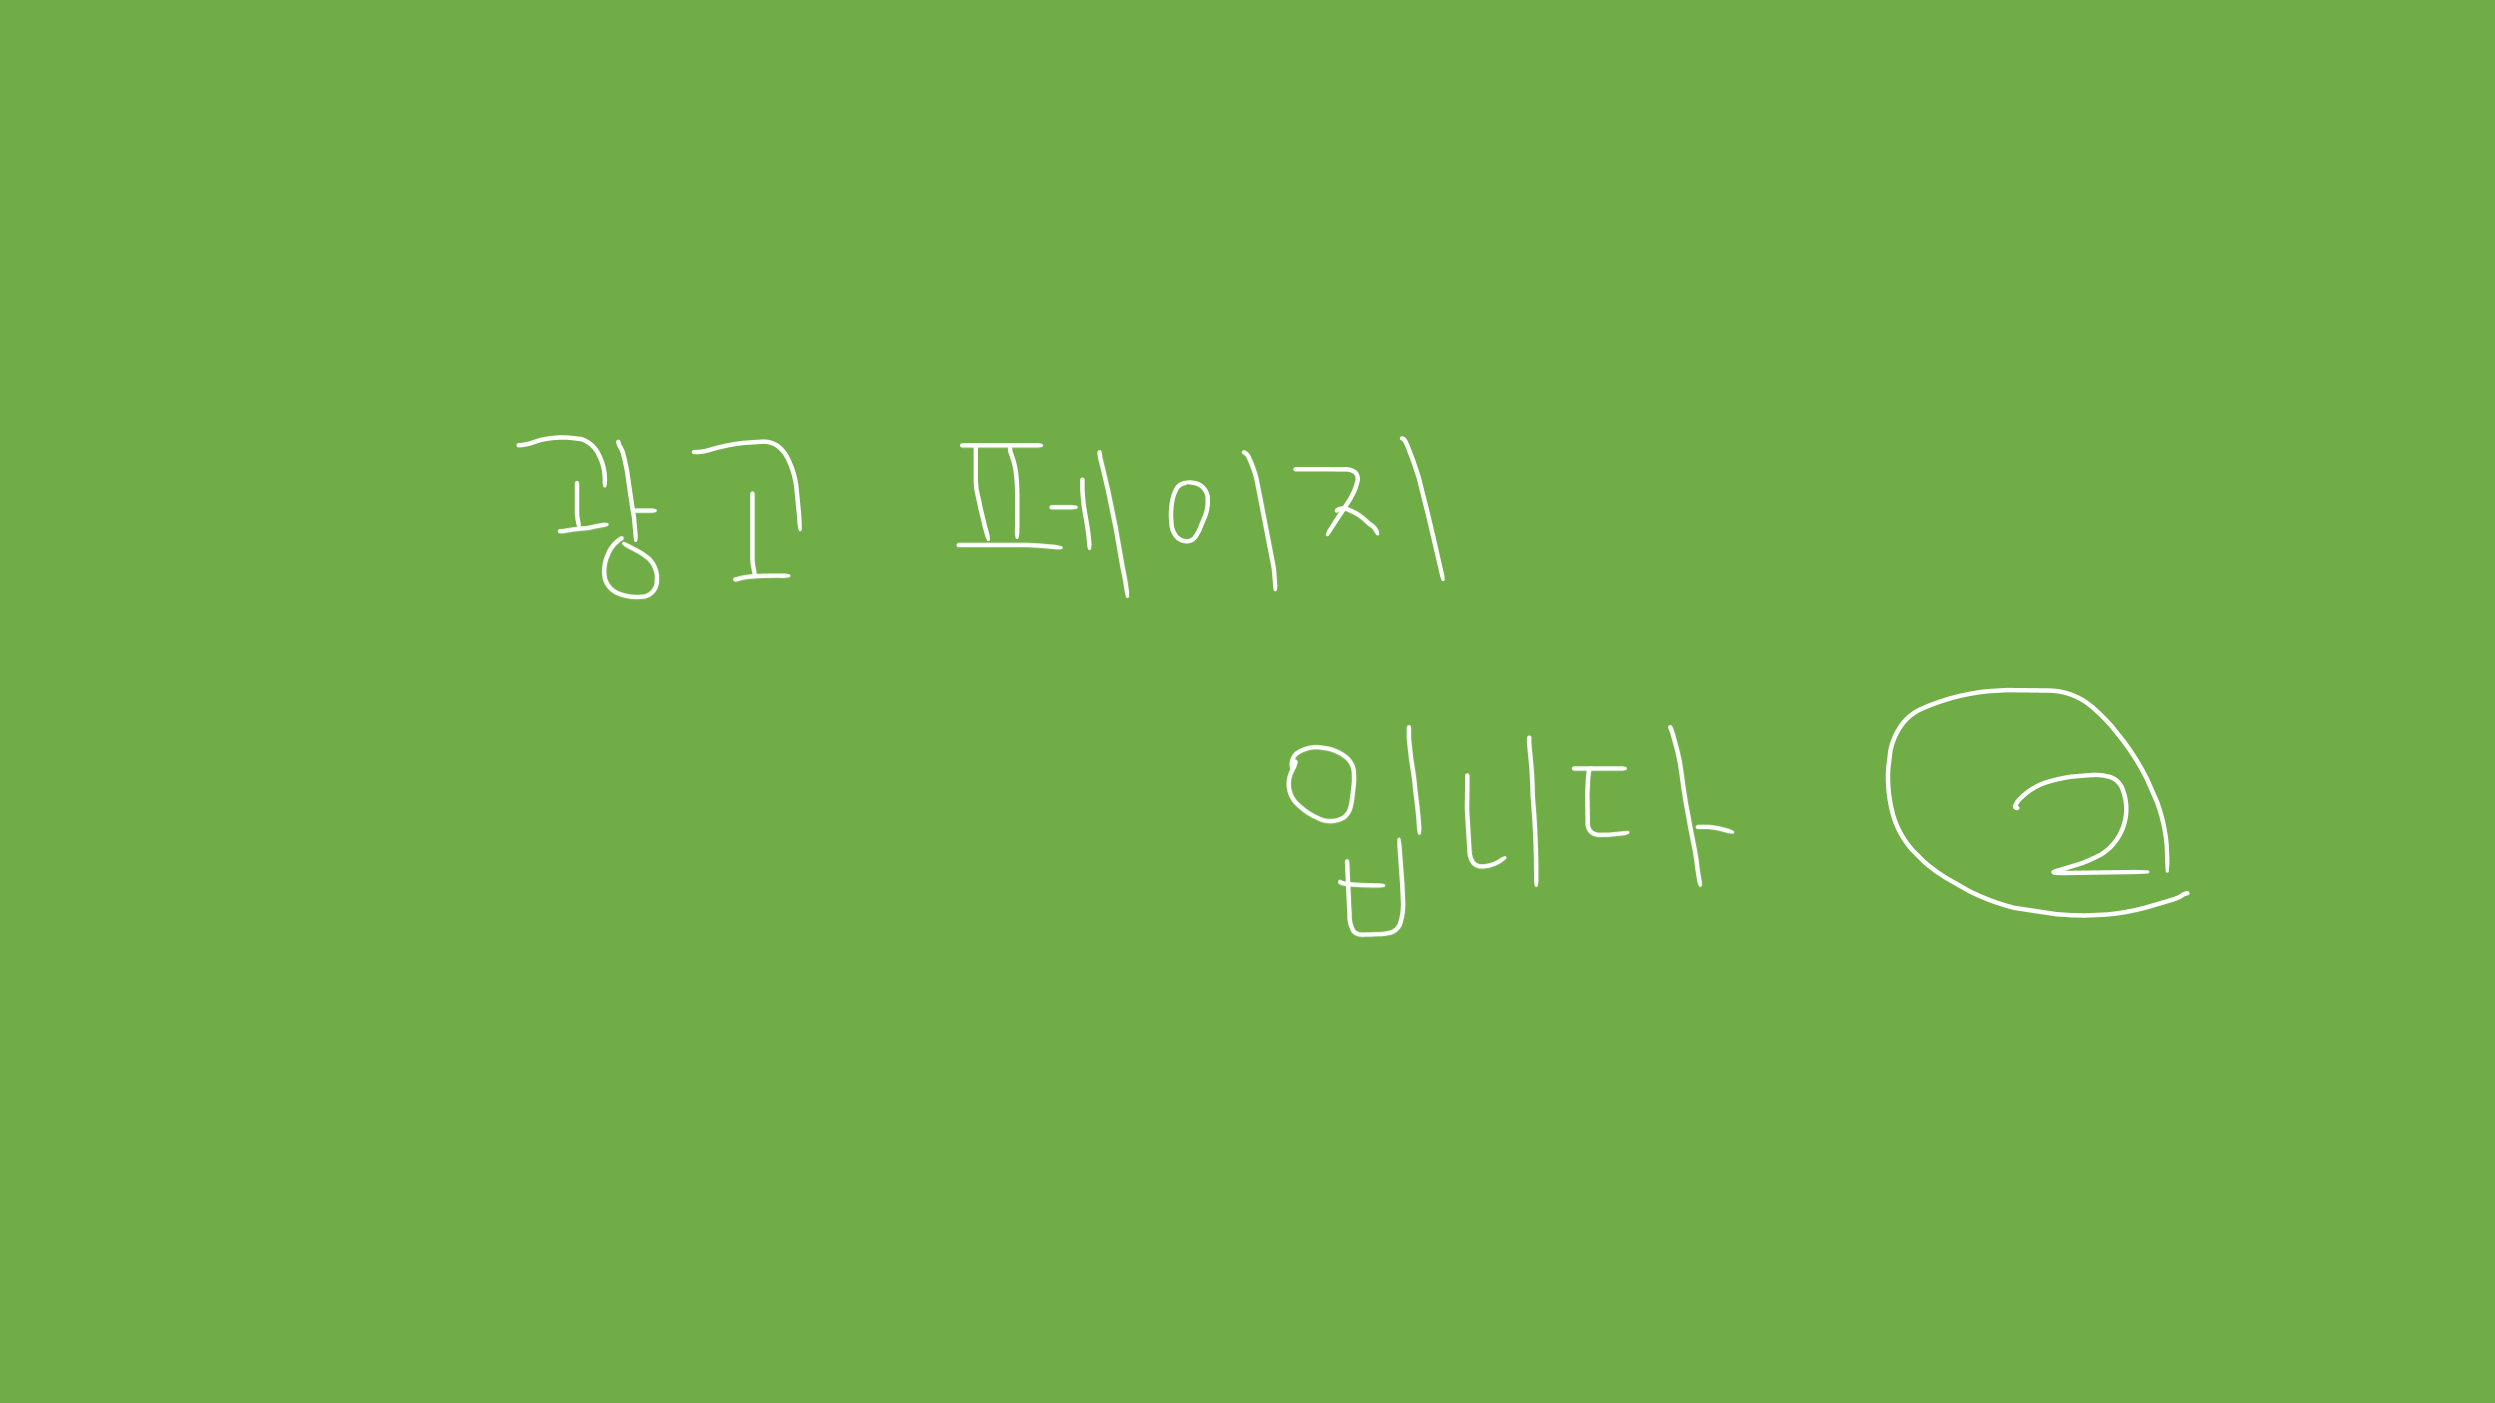 광고 페이지
입니다 ②